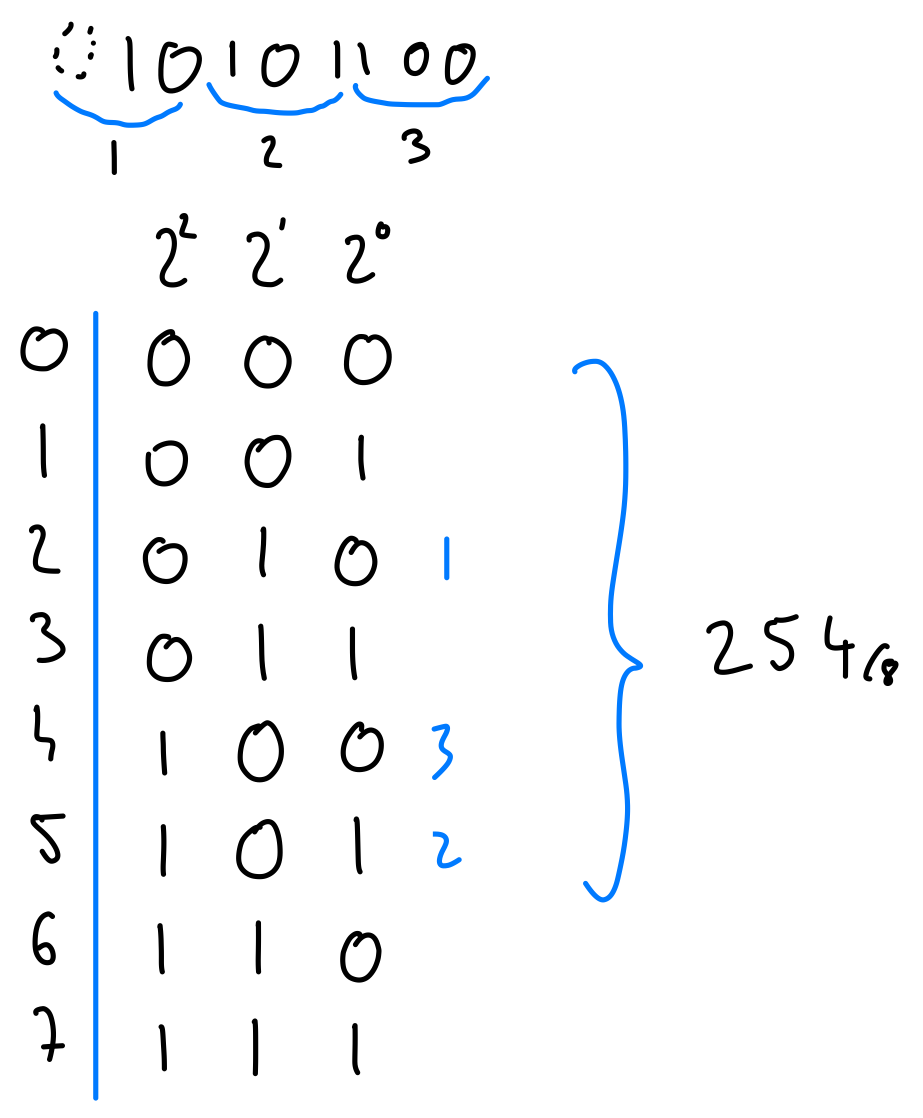 0 1 0 1 0 1 1 0 0
1 2 3
2² 2¹ 2⁰
0 0 0 0
1 0 0 1
2 0 1 0 1
3 0 1 1
4 1 0 0 3
5 1 0 1 2
6 1 1 0
7 1 1 1
254/8